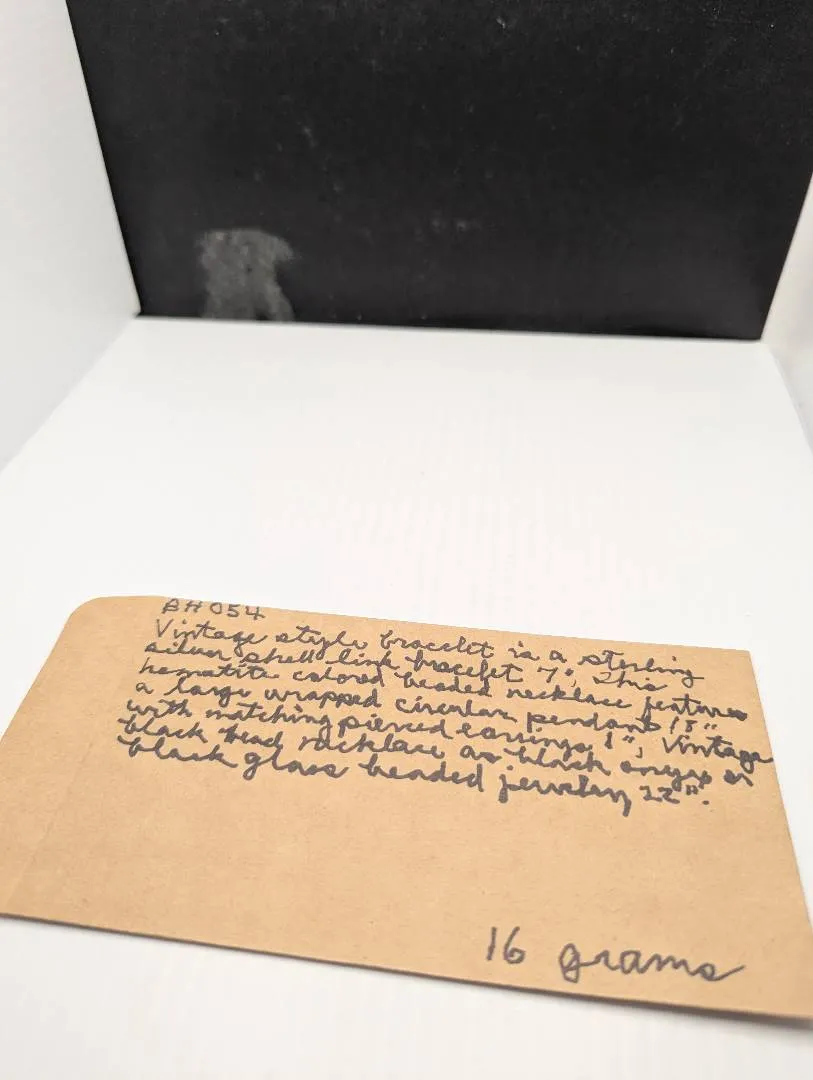 BH054
Vintage style bracelet is a sterling
silver shell link bracelet 7", This
hematite colored beaded necklace features
a large wrapped circular pendant 18"
with matching pierced earrings 1", Vintage
black bead necklace as black onyx or
black glass beaded jewelry 22".
16 grams